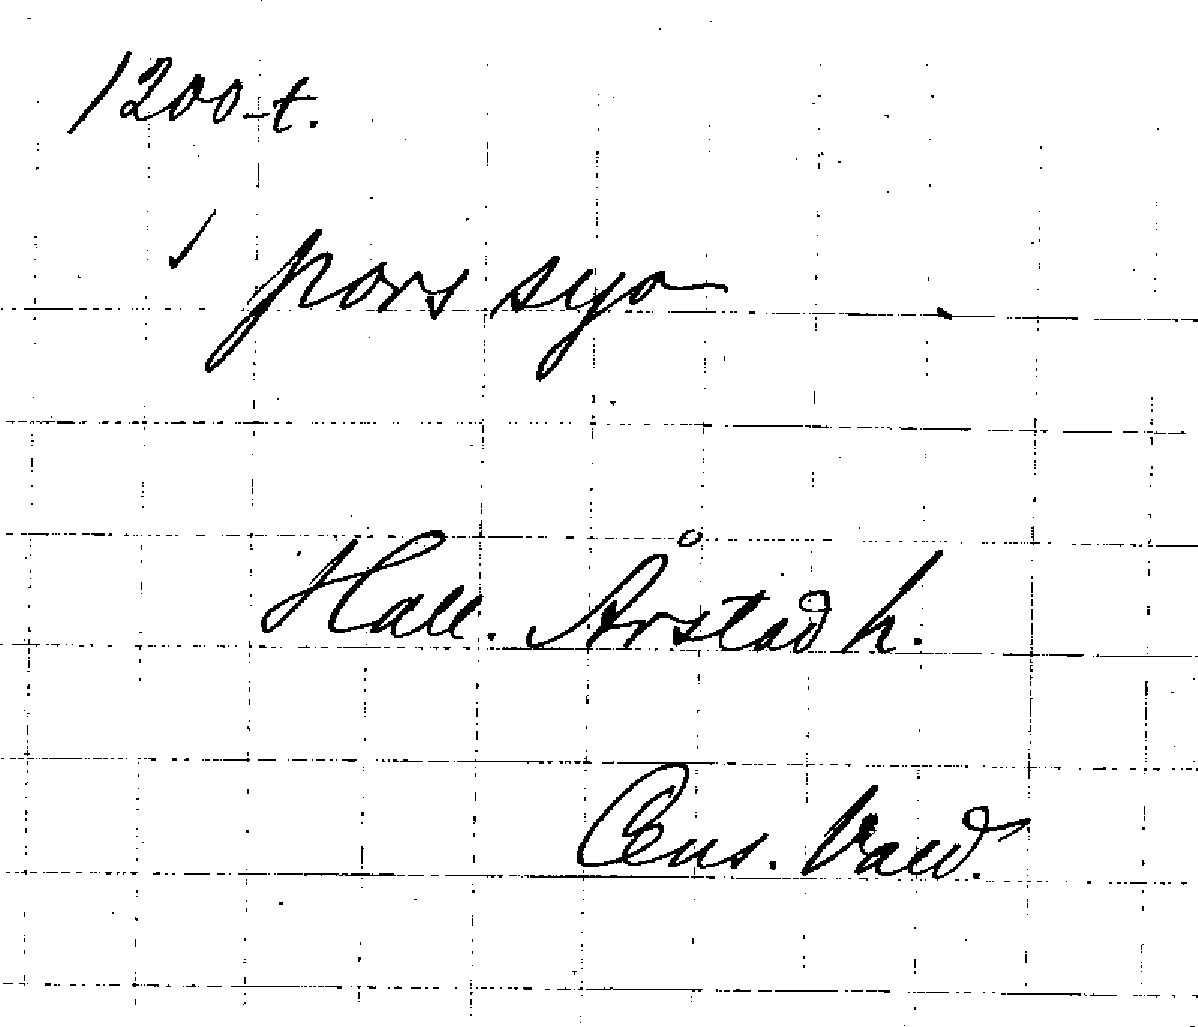 1200-t.
pors syo
Hall. Årstad h.
Cens. Vald.